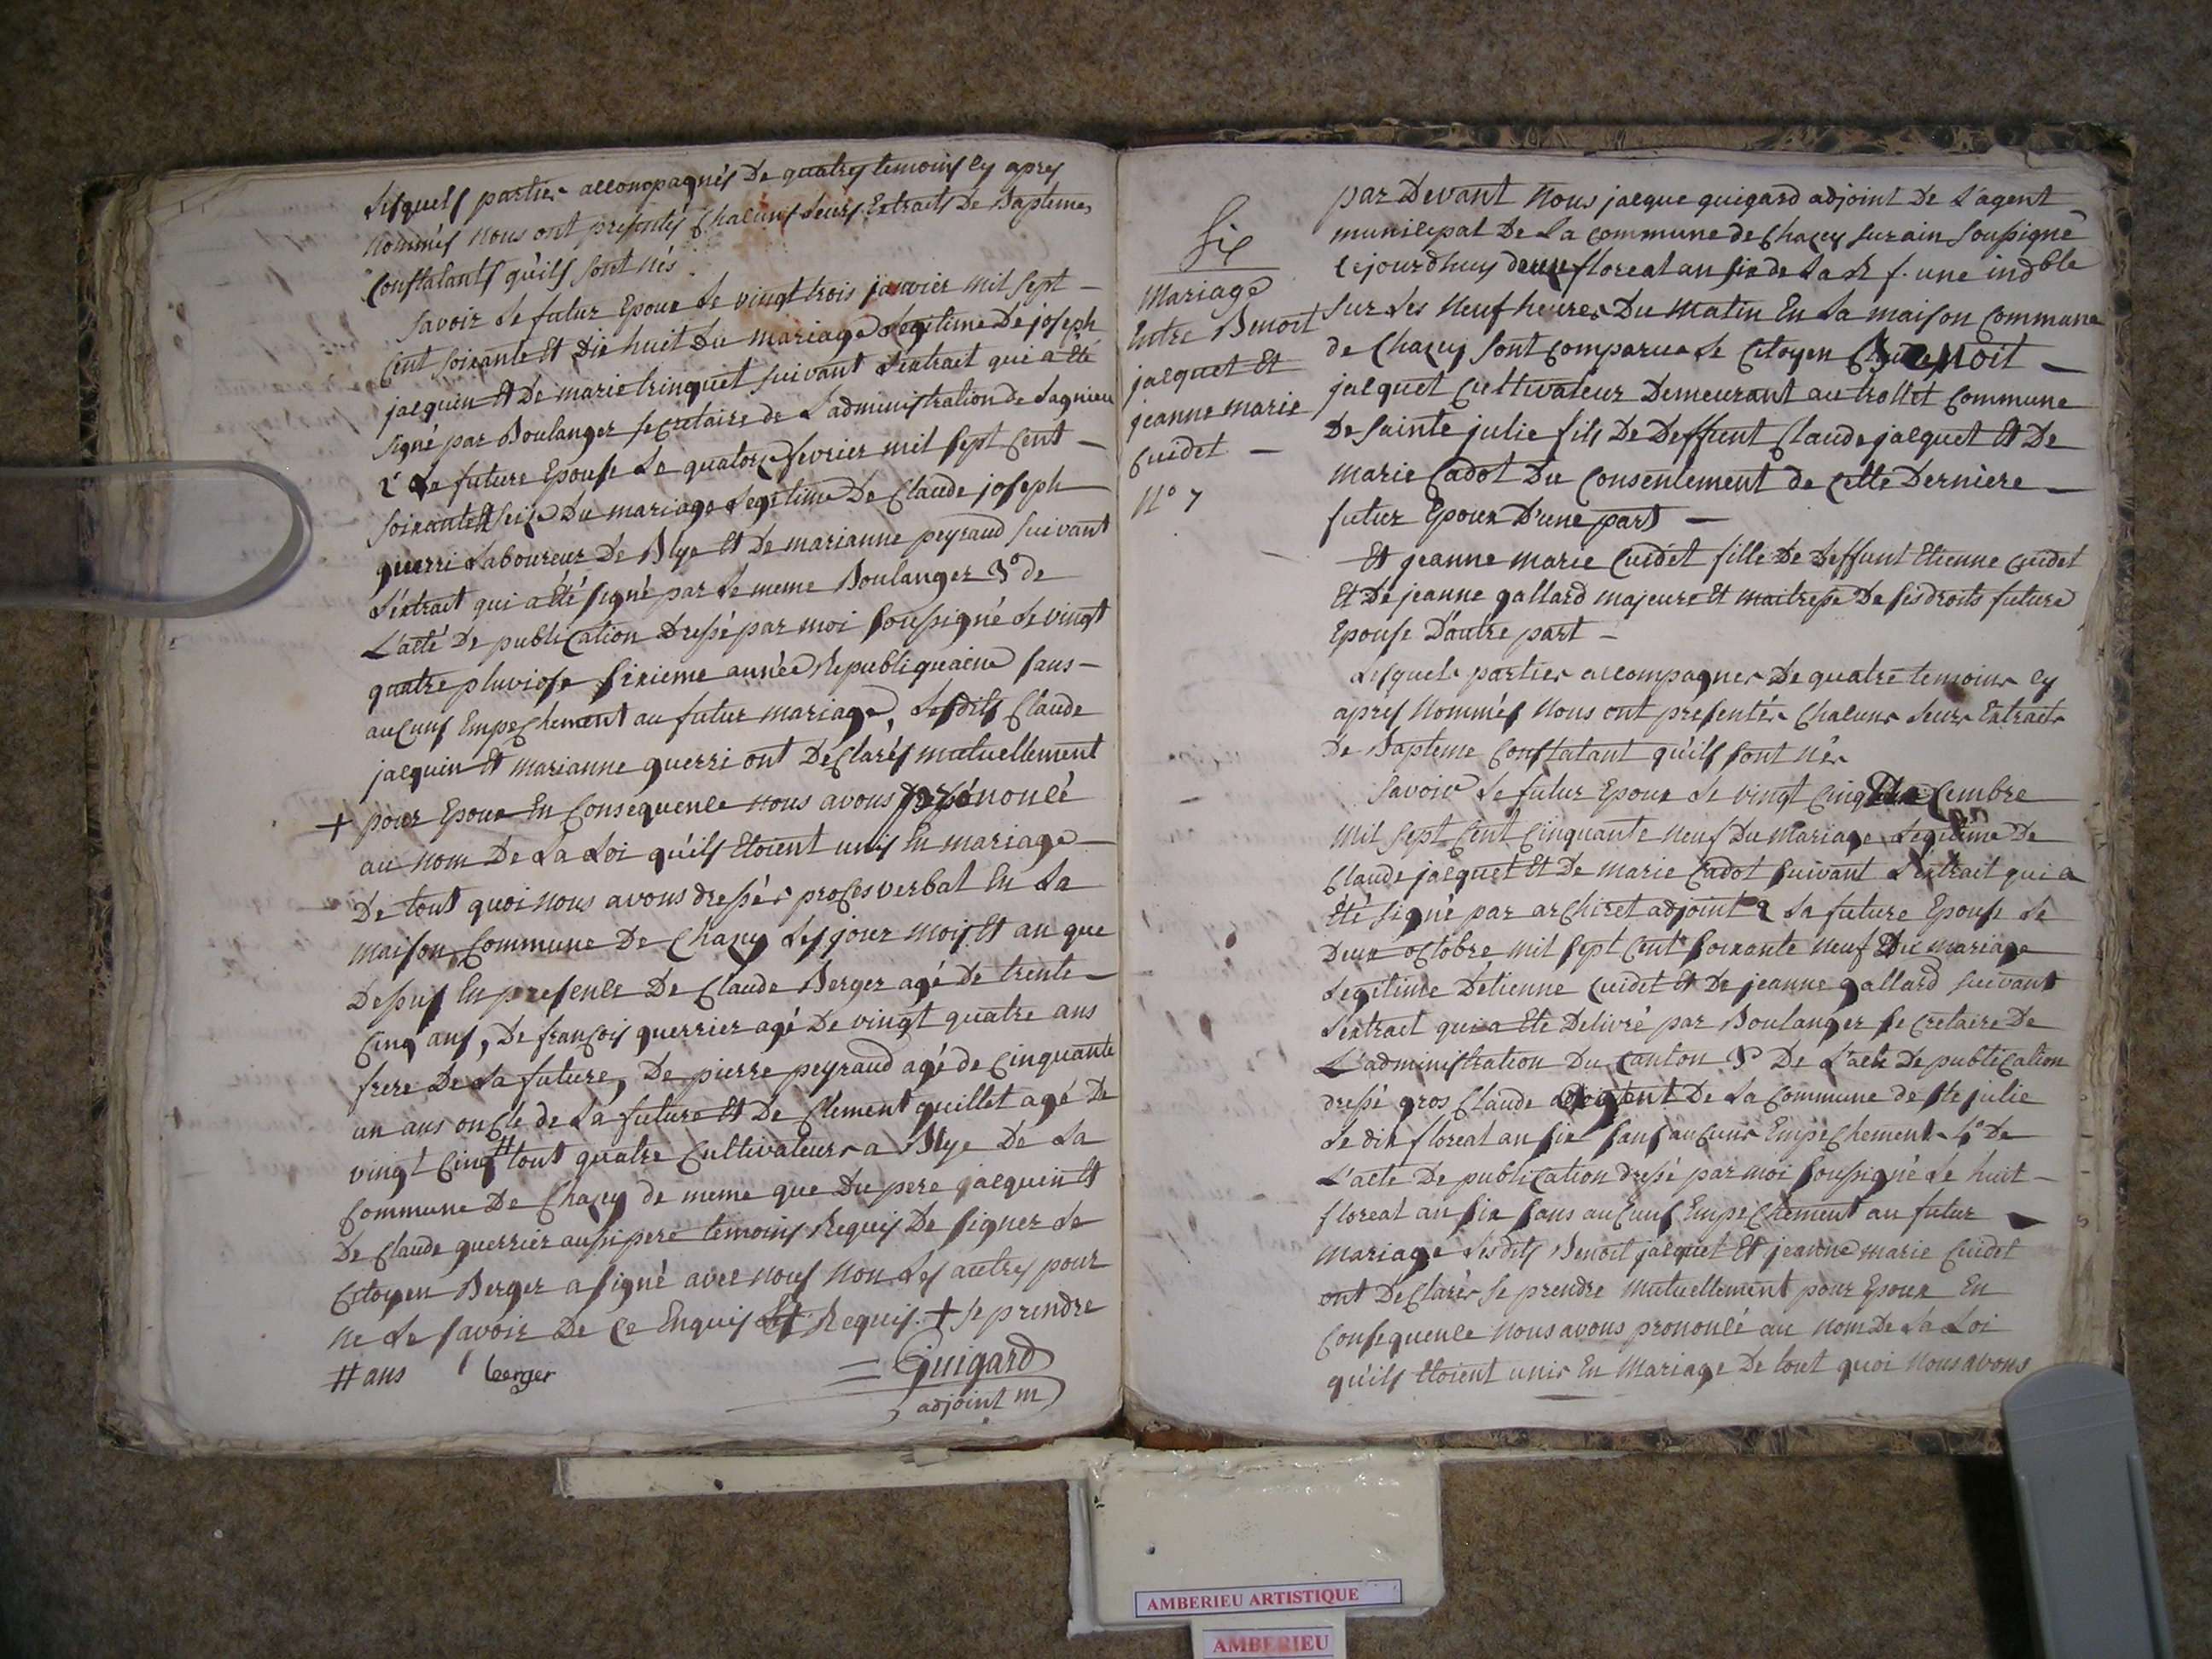 Lesquels parties accompagnés De quatres temoins Cy apres
nommés nous ont presentés Chacuns Leurs Extraits De Baptemes
Constatants qu'ils sont nés
Savoir Le futur Epoux Le vingt trois janvier mil sept
Cent soixante Et Dix huit Du mariage Legitime De joseph
jacquin Et De marie trinquet suivant L'extrait qui a Eté
signé par Boulanger secretaire de L'administration de Lagnieu
2° La future Epouse Le quatorze fevrier mil sept Cent
soixante Et seize Du mariage Legitime De Claude joseph
guerri Laboureur De Blye Et De marianne peyraud suivant
L'extrait qui a Eté signé par Le meme Boulanger 3° de
L'acte De publication Dressé par moi soussigné Le vingt
quatre pluviose sixieme année Republiquaine sans
aucuns Empechement au futur mariage, Lesdits Claude
jacquin Et marianne guerri ont Declarés mutuellement
+ pour Epoux En Consequence nous avons prononcé
au nom De La Loi qu'ils Etoient unis En mariage
De tout quoi nous avons dressés procès verbal En La
maison Commune De Chazey Les jour mois Et an que
Dessus En presence De Claude Berger agé De trente
Cinq ans, De françois guerrier agé De vingt quatre ans
frere De La future, De pierre peyraud agé de Cinquante
un ans oncle de La future Et De Clement guillet agé De
vingt Cinq # tout quatre Cultivateurs a Blye De La
Commune De Chazey de meme que Du pere jacquin Et
De Claude guerrier aussi pere temoins Requis De signer Le
Citoyen Berger a signé avec nous non Les autres pour
ne Le savoir De Ce Enquis Et Requis. + se prendre
# ans berger = Guigard
adjoint m
Six
Mariage
Entre Benoit
jacquet Et
jeanne marie
Cuidet
N° 7
par Devant Nous jacque guigard adjoint De L'agent
municipal De La Commune de Chazey sur ain soussigné
Cejourdhuy douze floreal an six de La R f. une indble
sur Les Neuf heures Du Matin En La maison Commune
de Chazey sont Comparus Le Citoyen Benoit
jacquet Cultivateur Demeurant au trollet Commune
De sainte julie fils De Deffunt Claude jacquet Et De
marie Cadot Du Consentement de Cette Derniere
futur Epoux D'une part
Et jeanne marie Cuidet fille De Deffunt Etienne Cuidet
Et De jeanne gallard majeure Et maitresse De ses droits future
Epouse D'autre part
Lesquels parties accompagnes De quatre temoins Cy
apres Nommés Nous ont presentés Chacuns Leurs Extraits
De Bapteme Constatant qu'ils sont nés
Savoir Le futur Epoux Le vingt Cinq Decembre
mil sept Cent Cinquante neuf Du Mariage Legitime De
Claude jacquet Et De marie Cadot suivant L'extrait qui a
Eté signé par archiret adjoint 2 La future Epouse Le
Deux octobre mil sept Cent soixante neuf Du mariage
Legitime D'etienne Cuidet Et De jeanne gallard suivant
L'extrait qui a Eté Delivré par Boulanger secretaire De
L'administration Du Canton 3° De L'acte De publication
dressé gros Claude agent De La Commune de ste julie
Le dix floreal an six sans aucuns Empechements 4° De
L'acte De publication dressé par moi soussigné Le huit
floreal an six sans aucuns Empechement au futur
Mariage Lesdits Benoit jacquet Et jeanne marie Cuidet
ont Declarés se prendre Mutuellement pour Epoux En
Consequence Nous avons prononcé au nom De La Loi
qu'ils Etoient unis En Mariage De tout quoi Nous avons
AMBERIEU ARTISTIQUE
AMBERIEU